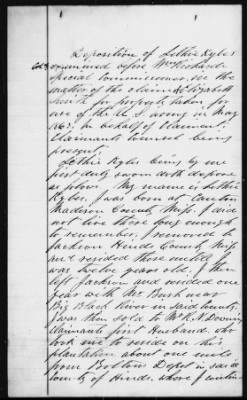 Deposition of Lettie Ryles
examined before Wm
Special Commissioner in the
matter of the claim of Elizabeth
for property taken for
use of the U.S. army in May
1863. In behalf of Claimant.
Claimants Counsel being
present.
Lettie Ryles being by me
first duly sworn doth depose
as follows. My name is Lettie
Ryles, I was born at Canton
Madison County Miss. I did
not live there long enough
to remember. I removed to
Jackson Hinds County Miss
and resided there until I
was twelve years old. I then
left Jackson and resided one
year with Mr Bush near
Big Black River in said County.
I was then sold to Mr R. N. Downing
Claimants first Husband who
took me to reside on his
plantation about one mile
from Boltons Depot in said
County of Hinds. where I